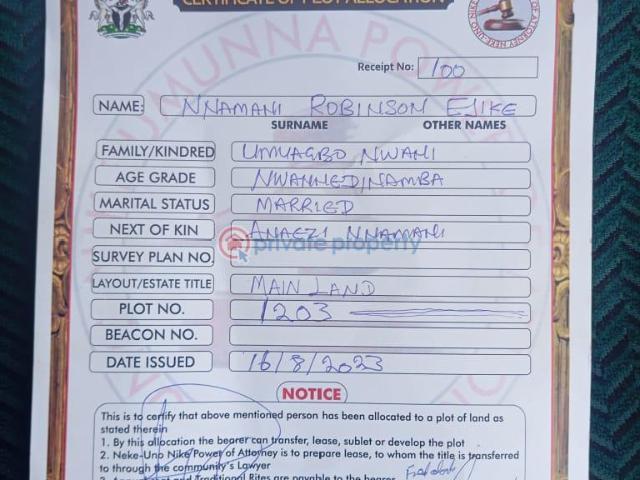 CERTIFICATE OF PLOT ALLOCATION
Receipt No: 100
NAME: NNAMANI ROBINSON EJIKE
SURNAME OTHER NAMES
FAMILY/KINDRED UMUAGBO NWANI
AGE GRADE NWANNEDINAMBA
MARITAL STATUS MARRIED
NEXT OF KIN ANAEZI NNAMANI
private property
SURVEY PLAN NO.
LAYOUT/ESTATE TITLE MAIN LAND
PLOT NO. 1203
BEACON NO.
DATE ISSUED 16/8/2023
NOTICE
This is to certify that above mentioned person has been allocated to a plot of land as
stated therein
1. By this allocation the bearer can transfer, lease, sublet or develop the plot
2. Neke-Uno Nike Power of Attorney is to prepare lease, to whom the title is transferred
to through the community's Lawyer
and Traditional Rites are payable to the bearer